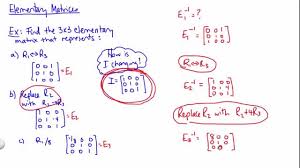 Elementary Matrices
Ex: Find the 3x3 elementary
matrix that represents:
a) R₁⇔R₃
[0 0 1
0 1 0
1 0 0] = E₁
How is
I changing?
I = [1 0 0
0 1 0
0 0 1]
b) Replace R₂
with
= E₂
c) R₁/8
= E₃
E₁⁻¹ = ?
E₁⁻¹ = [0 0 1
0 1 0
1 0 0]
R₁⇔R₃
E₂⁻¹ =
Replace R₂ with R₂+4R₃
E₃⁻¹ = [8 0 0
0 1 0
0 0 1]